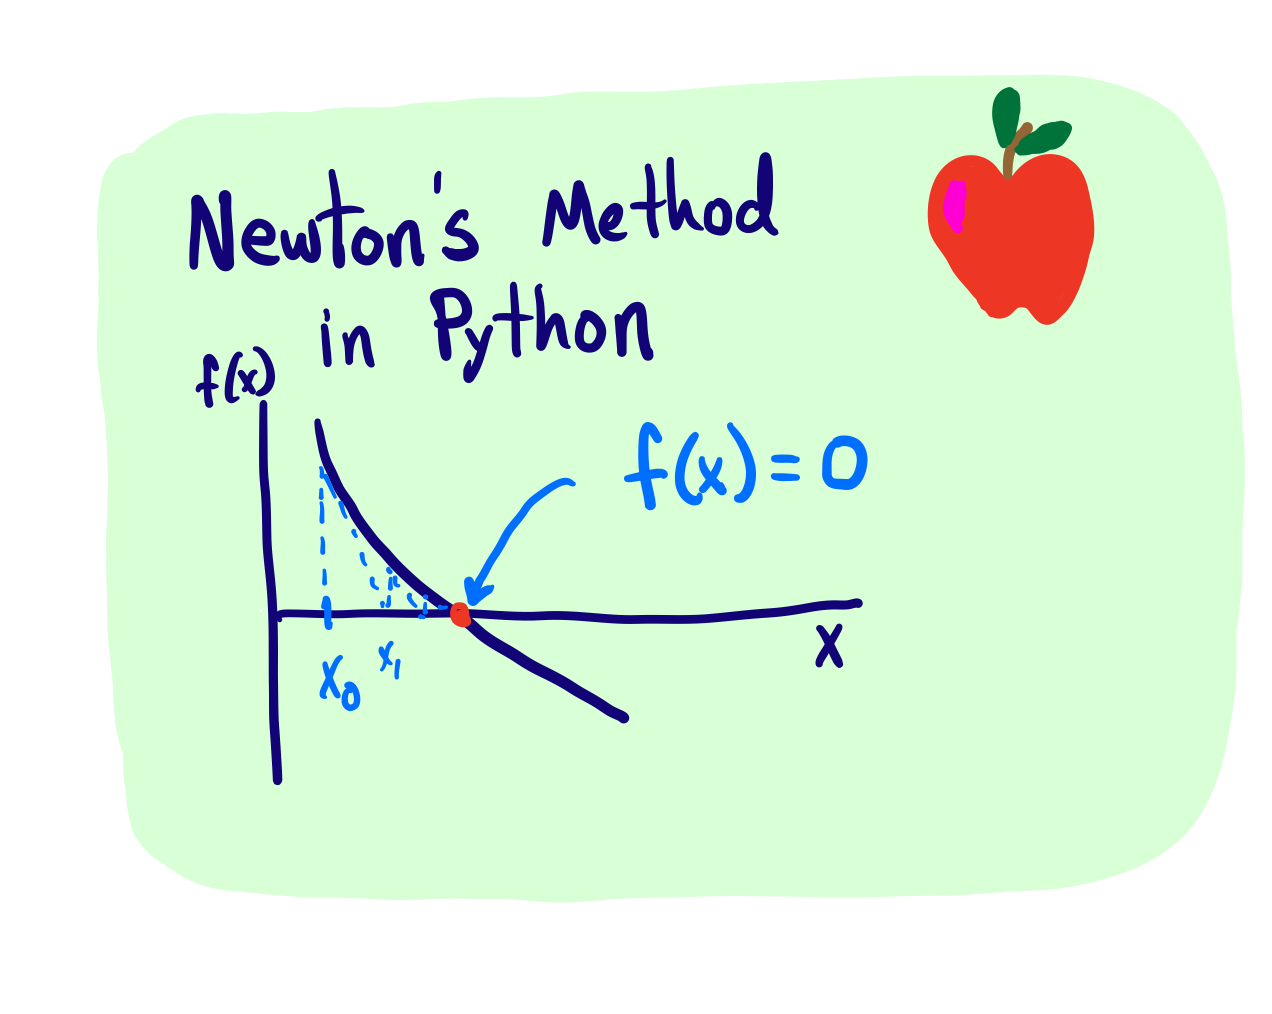 Newton's Method
in Python
f(x)
f(x) = 0
x
x₀
x₁